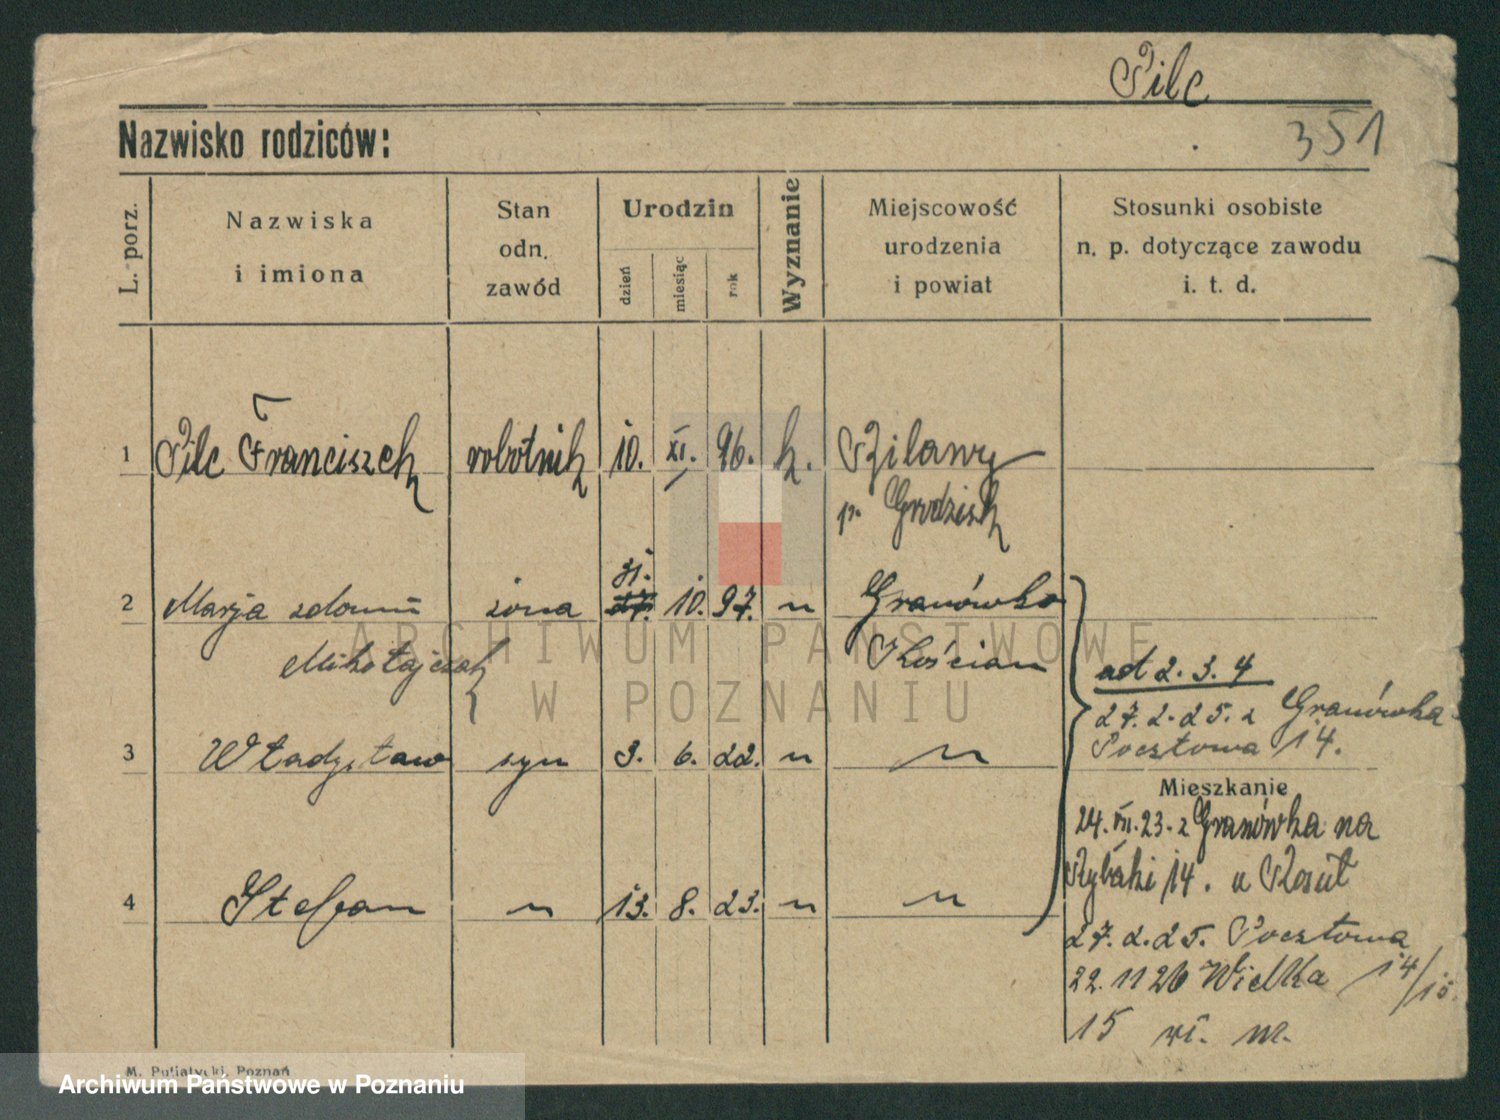 Pilc
Nazwisko rodziców:
351
L. porz.
Nazwiska
i imiona
Stan
odn.
zawód
Urodzin
dzień
miesiąc
rok
Wyznanie
Miejscowość
urodzenia
i powiat
Stosunki osobiste
n. p. dotyczące zawodu
i. t. d.
1 Pilc Franciszek robotnik 10. XI. 96. k.
p. Grodzisk
31.
2 Marja zdomu żona 10. 97. " Granówko
Mikołajczak Kościan
ad 2. 3. 4
27. 2. 25. z Granówka
Pocztowa 14.
3 Władysław syn 3. 6. 22. " "
Mieszkanie
24. VII. 23. z Granówka na
Rybaki 14. u
4 Stefan " 13. 8. 23. " "
27. 2. 25. Pocztowa
22. 11 26 Wielka 14/
15
M. Putiatycki, Poznań
ARCHIWUM PAŃSTWOWE
W POZNANIU
Archiwum Państwowe w Poznaniu